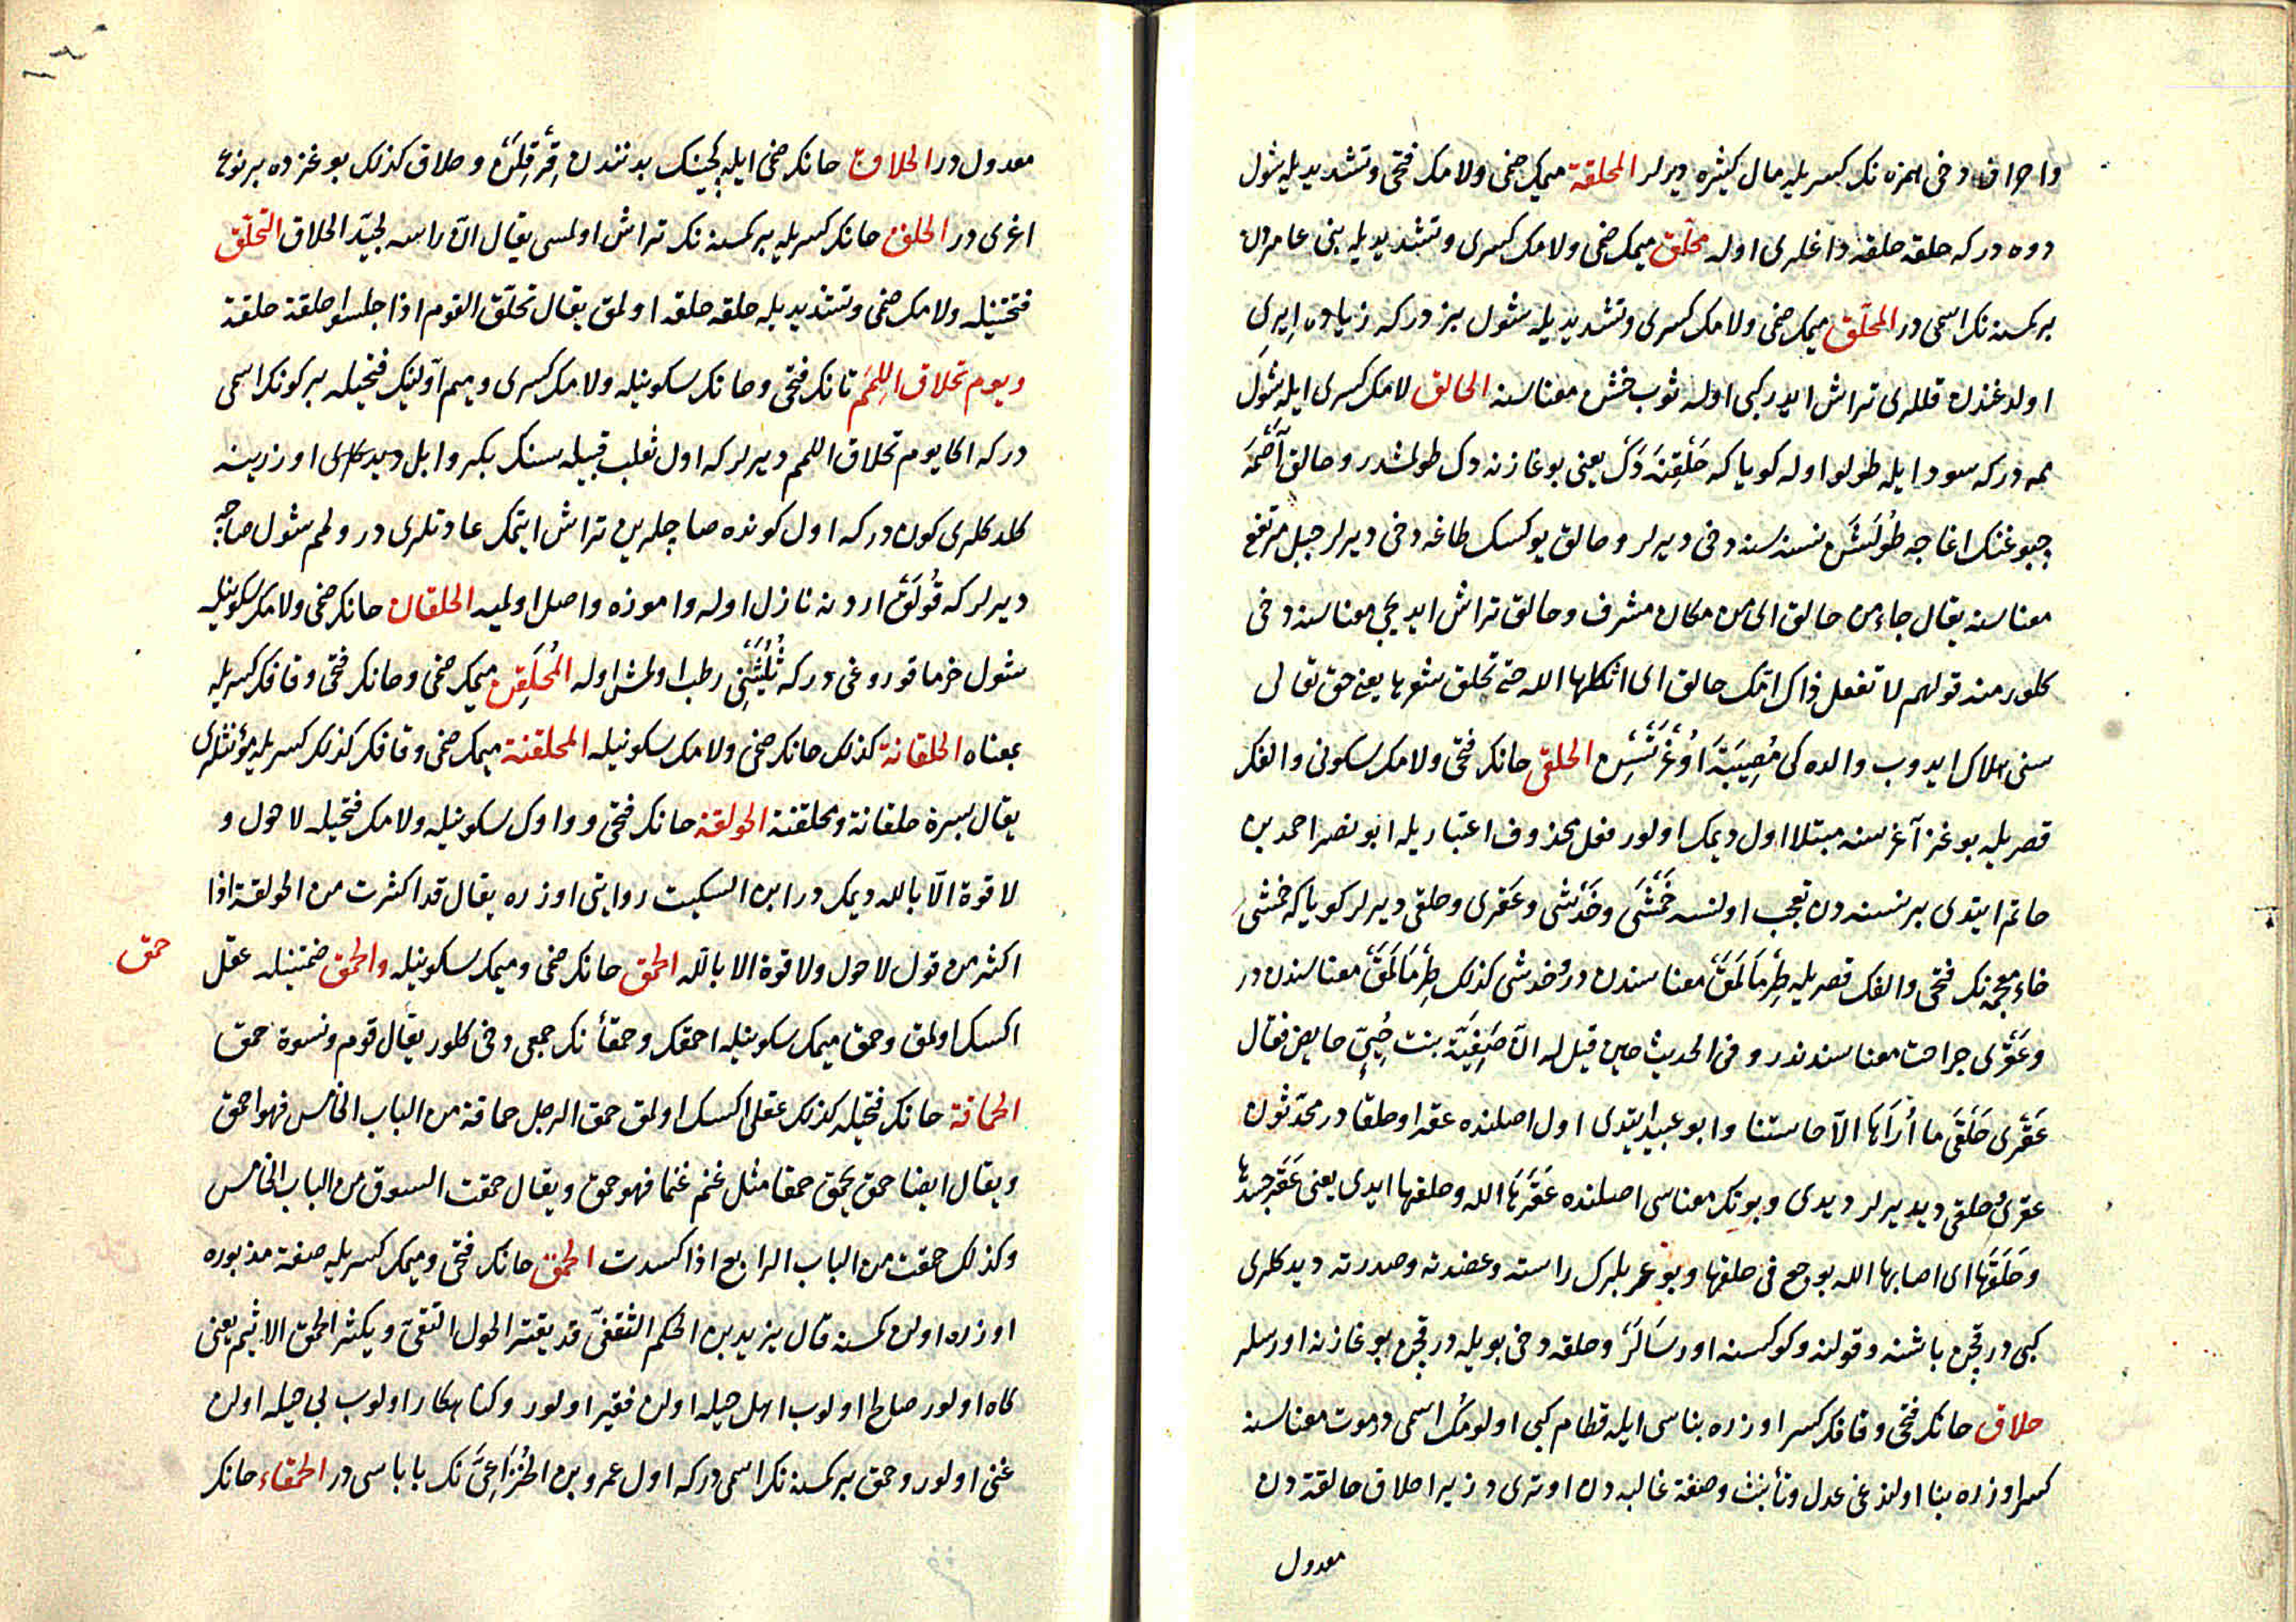 واحراف دخى همزه نك كسريله مال كثيره ديرلر المحلقة ميمك ضمى ولامك فتحى وتشديديله شول
دوه در كه حلقه حلقه داغلرى اوله محلّق ميمك ضمى ولامك كسرى وتشديديله بنى عامردن
بر كمسنه نك اسمى در المحلّق ميمك ضمى ولامك كسرى وتشديديله شول بز در كه زياده ايرى
اولدغندن قللرى تراش ايدر كبى اوله ثوب خشن معناسنه الحالق لامك كسرى ايله شول
ممه در كه سود ايله طولو اوله كويا كه حلقنه دك يعنى بوغازنه دك طولمشدر وحالق آصمه
چبوغنك اغاجه طولشن نسنه سنه دخى ديرلر وحالق يوكسك طاغه دخى ديرلر جبل مرتفع
معناسنه يقال جاء من حالق اى من مكان مشرف وحالق تراش ايديجى معناسنه دخى
كلور منه قولهم لا تفعل ذاك امّك حالق اى اثكلها الله حتى تحلق شعرها يعنى حق تعالى
سنى هلاك ايدوب والده كى مصيبة اوغرتسن الحلقى حانك فتحى ولامك سكونى والفك
قصريله بوغز آغرسنه مبتلا اول ديمك اولور فعل محذوف اعتباريله ابو نصر احمد بن
حاتم ايتدى بر نسنه دن تعجب اولنسه خمشى وخدشى وعقرى وحلقى ديرلر كويا كه خمشى
خاء معجمه نك فتحى والفك قصريله طرمالمق معناسندن در وخدشى كذلك طرمالمق معناسندن در
وعقرى جراحت معناسندندر وفى الحديث حين قيل له انّ صفيّة بنت حُييّ حايض فقال
عقرى حلقى ما أراها الّا حابستنا وابو عبيد ايتدى اول اصلنده عقرا وحلقا در محدّثون
عقرى وحلقى ديديرلر ديدى وبونك معناسى اصلنده عقرها الله وحلقها ايدى يعنى عقر جسدها
وحلقها اى اصابها الله بوجع فى حلقها وبو عربلرك راسته وعضدته وصدرته ديدكلرى
كبى در قچن باشنه وقولنه وكوكسنه اورسالر وحلقه دخى بويله در قچن بوغازنه اورسلر
حلاق حانك فتحى وقافك كسر اوزره بناسى ايله قطام كبى اولومك اسمى در موت معناسنه
كسر اوزره بنا اولندغى عدل وتأنيث وصفة غالبه دن اوترى در زيرا حلاق حالقة دن
معدول
معدول در الحلاق حانك ضمى ايله كچينك بدنندن قرقلن وحلاق كذلك بوغزده بر نوع
اغرى در الحلق حانك كسريله بر كمسنه نك تراش اولمسى يقال انّ راسه لجيّد الحلاق التحلّق
فتحتينله ولامك ضمى وتشديديله حلقه حلقه اولمق يقال تحلّق القوم اذا جلسوا حلقة حلقة
ويوم تحلاق اللمم تانك فتحى وحانك سكونيله ولامك كسرى وميم اوّلينك فتحيله بر كونك اسمى
در كه اكا يوم تحلاق اللمم ديرلر كه اول ثعلب قبيله سنك بكر وابل ديدكلرى اوزرينه
كلدكلرى كون در كه اول كونده صاچلرين تراش ايتمك عادتلرى در ولمم شول صاچه
ديرلر كه قولق اردنه نازل اوله واموزه واصل اولميه الحلقان حانك ضمى ولامك سكونيله
شول خرما قوروغى در كه ثلثنى رطب اولمش اوله المحلقن ميمك ضمى وحانك فتحى وقافك كسريله
بمعناه الحلقانة كذلك حانك ضمى ولامك سكونيله المحلقنة ميمك ضمى وقافك كذلك كسريله مؤنثلرى
يقال بسرة حلقانة ومحلقنة الحولقة حانك فتحى وواوك سكونيله ولامك فتحيله لا حول و
لا قوة الّا بالله ديمك در ابن السكيت روايتى اوزره يقال قد اكثرت من الحولقة اذا
اكثر من قول لا حول ولا قوة الا بالله الحمق حانك ضمى وميمك سكونيله والحمق ضمتينله عقل
حمق
اكسك اولمق وحمق ميمك سكونيله احمقك وحمقاء نك جمعى دخى كلور يقال قوم ونسوة حمق
الحماقة حانك فتحيله كذلك عقلى اكسك اولمق حمق الرجل حماقة من الباب الخامس فهو احمق
ويقال ايضا حمق يحمق حمقا مثل غنم غنما فهو حمق ويقال حمقت السوق من الباب الخامس
وكذلك حمقت من الباب الرابع اذا كسدت الحمق حانك فتحى وميمك كسريله صفة مذبوره
اوزره اولن كمسنه قال يزيد بن الحكم الثقفىّ قد يقتر الحول التقىّ ويكثر الحمق الاثيم يعنى
كاه اولور صالح اولوب اهل حيله اولن فقير اولور وكناهكار اولوب بى حيله اولن
غنى اولور وحمق بر كمسنه نك اسمى در كه اول عمرو بن الخزاعىّ نك باباسى در الحمقاء حانك